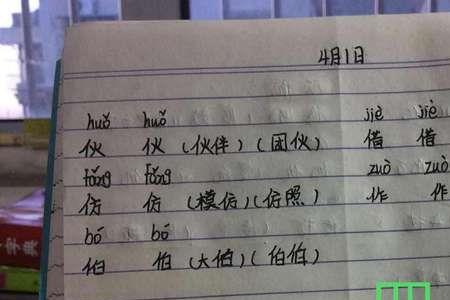 4月1日
huǒ huǒ jiè jiè
伙 伙 (伙伴) (团伙) 借 借
fǎng fǎng zuò zuò
仿 仿 (模仿) (仿照) 作 作
bó bó
伯 伯 (大伯) (伯伯)
字典